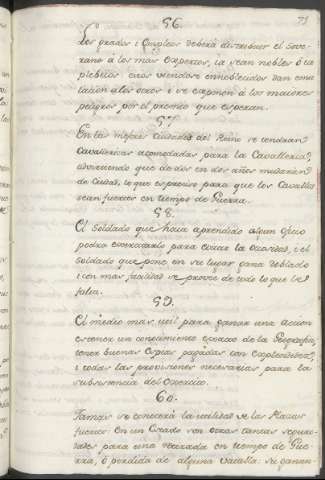 75
56.
Los grados i Empleos deberá distribuir el Sove-
rano á los mas Expertos, ia sean nobles ó ia
plebeios estos viendose ennoblecidos dan emu-
lacion á los otros i se exponen á los maiores
peligros por el premio que esperan.
57.
En las mejores Ciudades del Reino se tendran
Cavallerizas acomodadas para la Cavalleria,
advirtiendo que de dos en dos años mudarán
de Ciudad, lo que es preciso para que los Cavallos
sean fuertes en tiempo de Guerra.
58.
El Soldado que haia aprendido algun oficio
podrá exercitarlo para evitar la Ociosidad, i el
soldado que pone en su lugar gana doblado
i con mas facilidad se provee de todo lo que le
falta.
59.
El medio mas util para ganar una accion
es tener un conocimiento exacto de la Geografia,
tener buenas Espias pagadas con esplendidez,
i todas las provisiones necesarias para la
subsistencia del Exercito.
60.
Jamas se conocerá la utilidad de las Plazas
fuertes. En un Estado son otras tantas segu-
ridades para una retirada en tiempo de Gue-
rra, ó perdida de alguna batalla. Se ganan